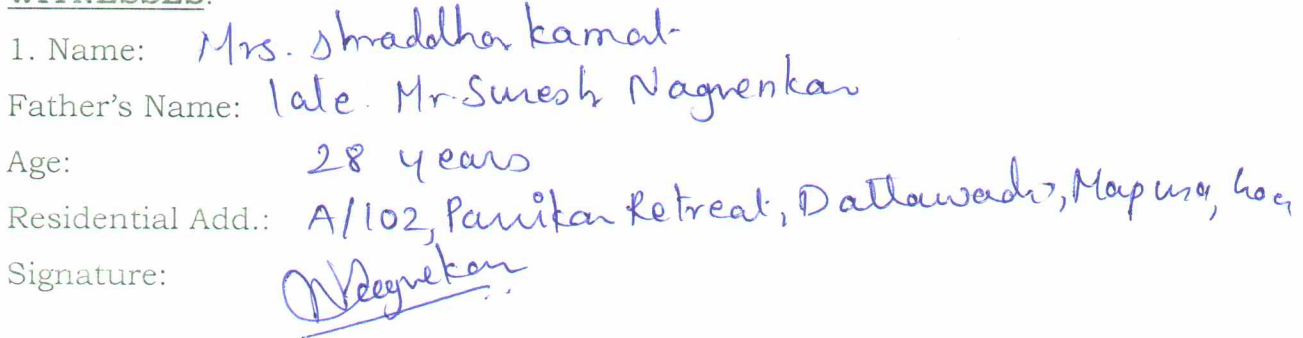 WITNESSES:
1. Name: Mrs. Shraddha Kamat
Father's Name: late. Mr. Suresh Nagvenkar
Age: 28 years
Residential Add.: A/102, Panikar Retreat, Dattawadi, Mapusa, Goa
Signature: